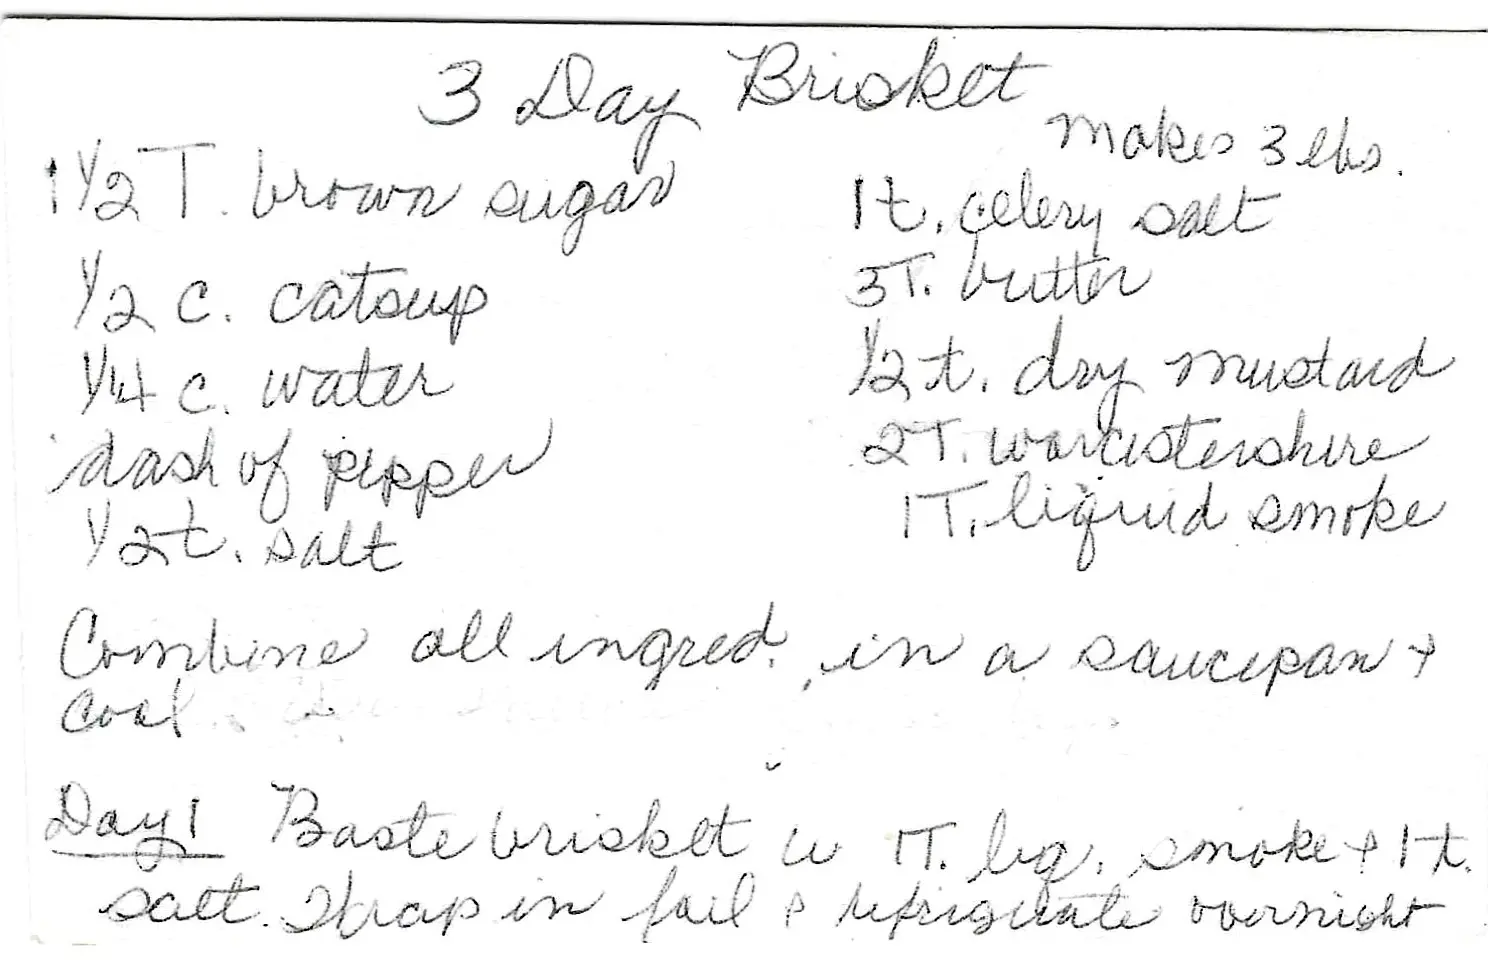 3 Day Brisket
makes 3 lbs.
1 1/2 T. brown sugar
1/2 c. catsup
1/4 c. water
dash of pepper
1/2 t. salt
1 t. celery salt
3 T. butter
1/2 t. dry mustard
2 T. worcistershire
1 T. liquid smoke
Combine all ingred. in a saucepan +
cool
Day 1 Baste brisket w 1T. liq. smoke + 1 t.
salt. Wrap in foil & refrigerate overnight